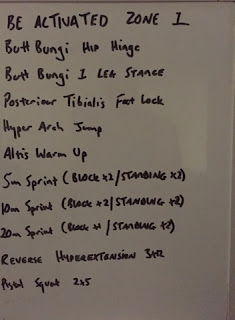 BE ACTIVATED ZONE 1
Butt Bungi Hip Hinge
Butt Bungi 1 LEG STANCE
Posterior Tibialis Foot Lock
Hyper Arch Jump
Altis Warm Up
5m Sprint (BLOCK x2/STANDING x3)
10m Sprint (BLOCK x2/STANDING x2)
20m Sprint (BLOCK x1/STANDING x2)
REVERSE HYPEREXTENSION 3x12
Pistol Squat 2x5